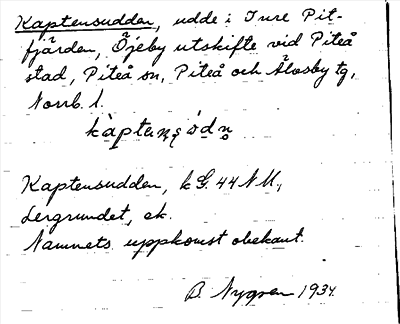 Kaptensudden, udde i Inre Pit-
fjärden, Öjeby utskifte vid Piteå
stad, Piteå sn, Piteå och Älvsby tg,
Norrb. l.
Kaptensudden, k G. 44 NU,
Lergrundet, ek.
Namnets uppkomst obekant.
B. Nygren 1934.